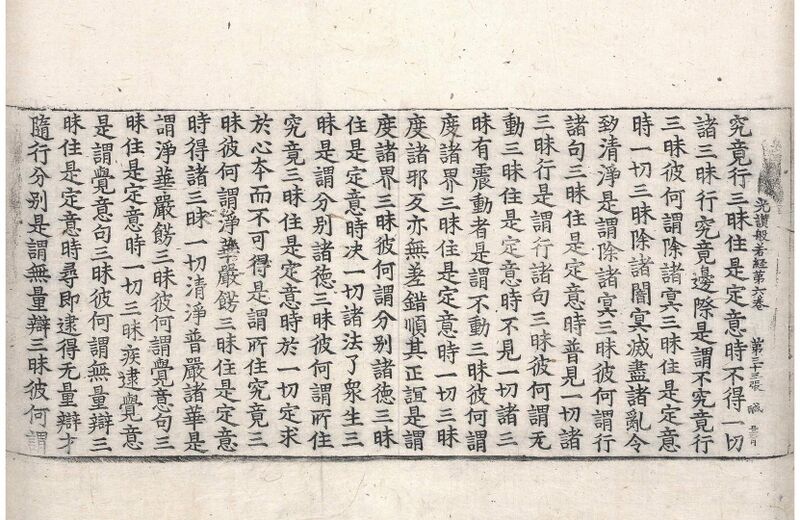 究竟行三昧住是定意時不得一切
光讚般若経第六卷 第二十三張 醎
諸三昧行究竟邊際是謂不究竟行
三昧彼何謂除諸㝠三昧住是定意
時一切三昧除諸闇㝠滅盡諸亂令
致清淨是謂除諸㝠三昧彼何謂行
諸句三昧住是定意時普見一切諸
三昧行是謂行諸句三昧彼何謂无
動三昧住是定意時不見一切諸三
昧有震動者是謂不動三昧彼何謂
度諸界三昧住是定意時一切三昧
度諸邪㕛亦無差錯順其正誼是謂
度諸界三昧彼何謂分别諸徳三昧
住是定意時决一切諸法了衆生三
昧是謂分别諸德三昧彼何謂所住
究竟三昧住是定意時於一切定求
於心本而不可得是謂所住究竟三
昧彼何謂淨華嚴餝三昧住是定意
時得諸三昧一切清淨普嚴諸華是
謂淨華嚴餝三昧彼何謂覺意句三
昧住是定意時一切三昧疾逮覺意
是謂覺意句三昧彼何謂無量辯三
昧住是定意時尋即逮得无量辯才
隨行分别是謂無量辯三昧彼何謂